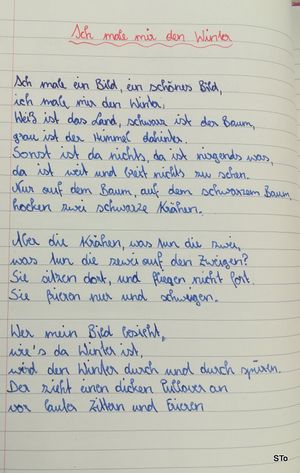 Ich male mir den Winter
Ich male ein Bild, ein schönes Bild,
ich male mir den Winter.
Weiß ist das Land, schwarz ist der Baum,
grau ist der Himmel dahinter.
Sonst ist da nichts, da ist nirgends was,
da ist weit und breit nichts zu sehen.
Nur auf dem Baum, auf dem schwarzem Baum
hocken zwei schwarze Krähen.
Aber die Krähen, was tun die zwei,
was tun die zwei auf den Zweigen?
Sie sitzen dort, und fliegen nicht fort.
Sie frieren nur und schweigen.
Wer mein Bild besieht,
wie's da Winter ist,
wird den Winter durch und durch spüren.
Der zieht einen dicken Pullover an
vor lauter Zittern und Frieren
STo